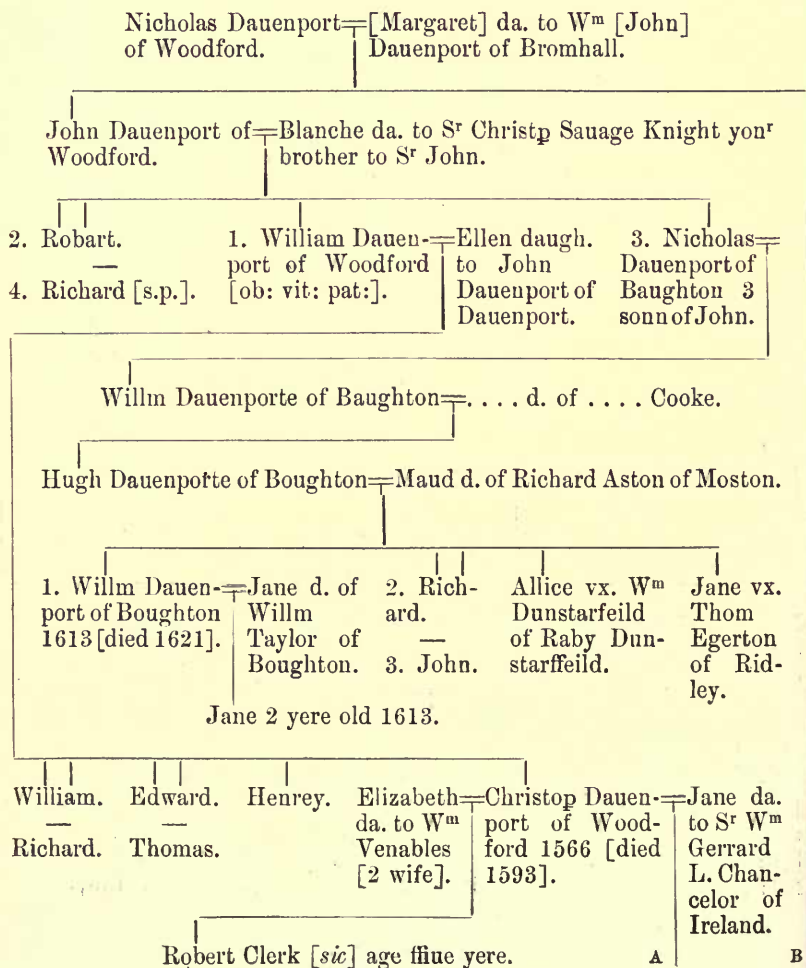 Nicholas Dauenport=[Margaret] da. to Wᵐ [John]
of Woodford. Dauenport of Bromhall.
John Dauenport of=Blanche da. to Sʳ Christꝑ Sauage Knight yonʳ
Woodford. brother to Sʳ John.
2. Robart.
—
4. Richard [s.p.].
1. William Dauen-
port of Woodford
[ob: vit: pat:].
=Ellen daugh.
to John
Dauenport of
Dauenport.
3. Nicholas=
Dauenport of
Baughton 3
sonn of John.
Willm Dauenporte of Baughton=. . . . d. of . . . . Cooke.
Hugh Dauenporte of Boughton=Maud d. of Richard Aston of Moston.
1. Willm Dauen-
port of Boughton
1613 [died 1621].
=Jane d. of
Willm
Taylor of
Boughton.
2. Rich-
ard.
—
3. John.
Allice vx. Wᵐ
Dunstarfeild
of Raby Dun-
starffeild.
Jane vx.
Thom
Egerton
of Rid-
ley.
Jane 2 yere old 1613.
William.
—
Richard.
Edward.
—
Thomas.
Henrey.
Elizabeth=
da. to Wᵐ
Venables
[2 wife].
Christoꝑ Dauen-
port of Wood-
ford 1566 [died
1593].
=Jane da.
to Sʳ Wᵐ
Gerrard
L. Chan-
celor of
Ireland.
Robert Clerk [sic] age ffiue yere.
A B